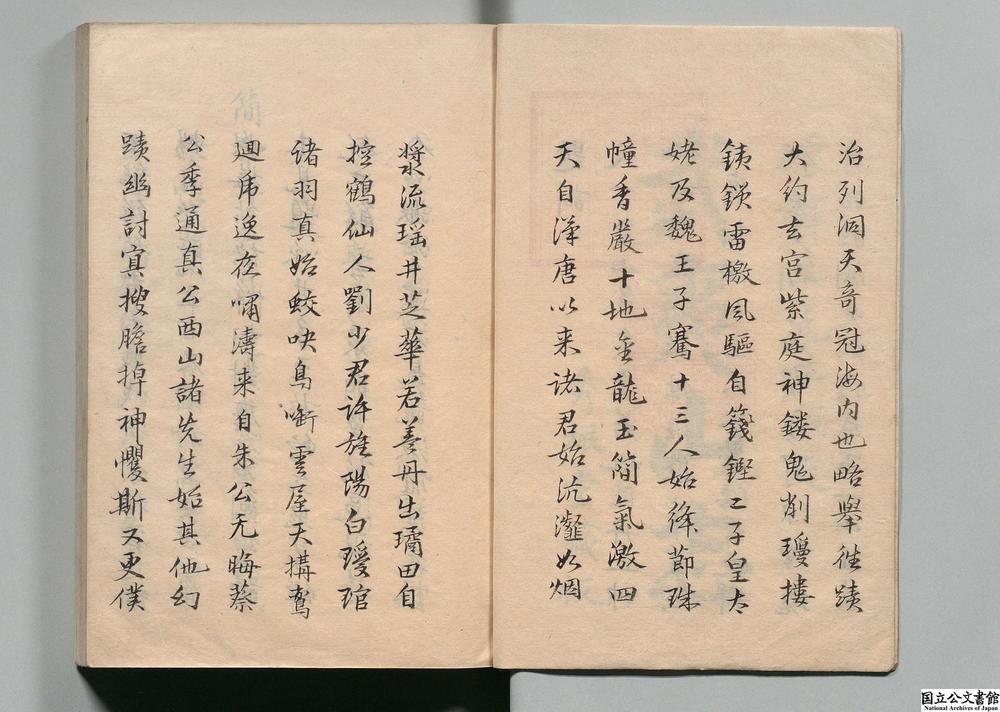 治列洞天奇冠海内也略舉往蹟
大約玄宮紫庭神鏤鬼削瓊摟
銕鎖雷檄風驅自籛鏗二子皇太
姥及魏王子騫十三人始絳節珠
幢香嚴十地金龍玉簡氣激四
天自漢唐以来諸君始沆瀣如烟
漿流瑶井芝華若蓋丹出璚田自
控鶴仙人劉少君許旌陽白瑗琯
諸羽真始蛟吷鳥噺雲屋天搆鸞
廻席逸在嘯濤来自朱公元晦蔡
公季通真公西山諸先生始其他幻
蹟幽討冥搜膽掉神懼斯又更僕
国立公文書館
National Archives of Japan